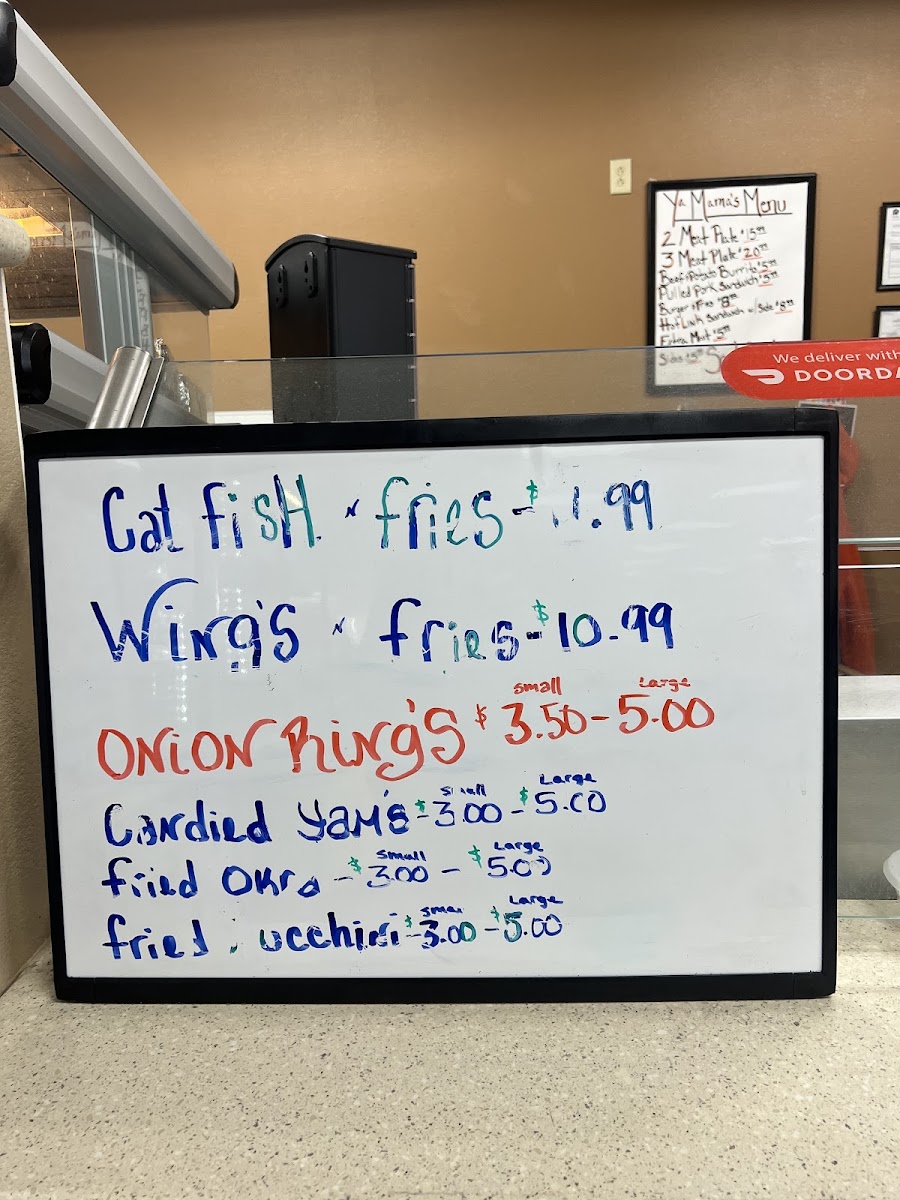 Ya Mama's Menu
2 Meat Plate $15.00
3 Meat Plate $20.00
Beef & Potato Burrito $5.00
Pulled Pork Sandwich $5.00
Burger & Fries $8.00
Hot Link Sandwich w/ Side $8.00
Extra Meat $5.00
Sides
We deliver with
DOORDA
Cat fisH n fries-$11.99
Wing's n fries-$10.99
small Large
ONiON Ring's $3.50-5.00
small Large
Candied Yam's-$3.00-$5.00
small Large
fried Okra-$3.00-$5.00
small Large
fried ucchini-$3.00-$5.00